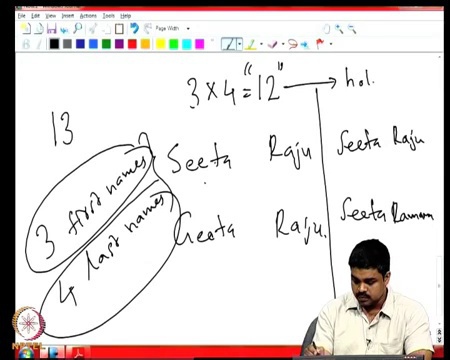 File Edit View Insert Actions Tools Help
Page Width
3 × 4 = "12" → hol.
13
3 first names
4 last names
Seeta Raju
Geeta Raju.
Seeta Raju
Seeta Ramana
NPTEL